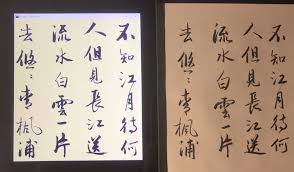 不知江月待何
人但見長江送
流水白雲一片
去悠〻青楓浦
不知江月待何
人但見長江送
流水白雲一片
去悠〻青楓浦